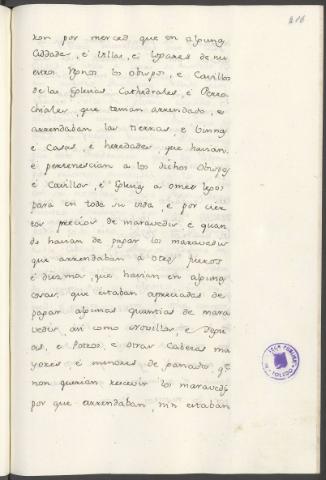 216
ron por merced que en algunas
Cibdades, é Villas, é Lugares de nu
estros Regnos los obispos, e Cavillos
de las Iglesias Cathedrales, é Perro
chiales, que tenian arrendado, e
arrendaban las tierras, é Vinnas
é Casas, é heredades que havian,
é pertenescian a los dichos Obispos
é Cavillos, é Iglesias a omes legos
para en toda su vida, é por cier
tos precios de maravedis, e quan
do havian de pagar los maravedis
que arrendaban á
é diezma, que havian en algunas
cosas, que estaban apreciadas de
pagar algunas quantias de mara
vedis, asi como Novillos, e
as, e Potros, e otras Cabezas ma
yores é menores de ganado, qe
non querian rescevir los maravedis
por que arrendaban, nin estaban
TOLEDO